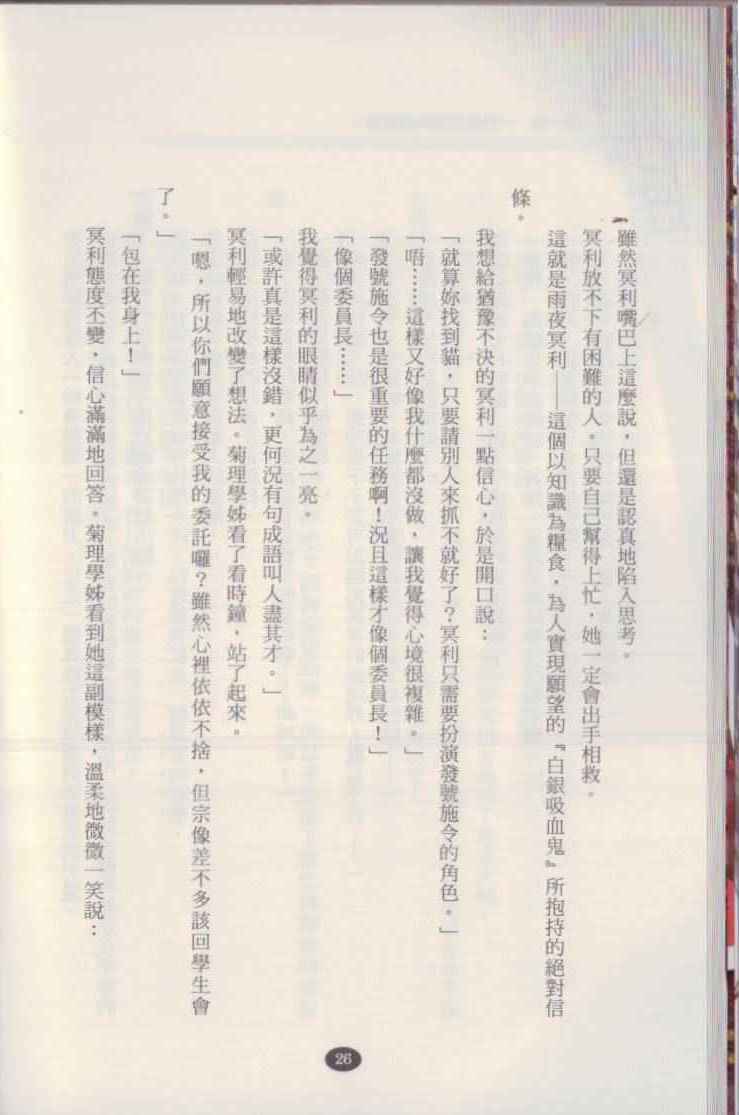 雖然冥利嘴巴上這麼說，但還是認真地陷入思考。
冥利放不下有困難的人。只要自己幫得上忙，她一定會出手相救。
這就是雨夜冥利——這個以知識為糧食，為人實現願望的『白銀吸血鬼』所抱持的絕對信
條。
我想給猶豫不決的冥利一點信心，於是開口說：
「就算妳找到貓，只要請別人來抓不就好了？冥利只需要扮演發號施令的角色。」
「唔……這樣又好像我什麼都沒做，讓我覺得心境很複雜。」
「發號施令也是很重要的任務啊！況且這樣才像個委員長！」
「像個委員長……」
我覺得冥利的眼睛似乎為之一亮。
「或許真是這樣沒錯，更何況有句成語叫人盡其才。」
冥利輕易地改變了想法。菊理學姊看了看時鐘，站了起來。
「嗯，所以你們願意接受我的委託囉？雖然心裡依依不捨，但宗像差不多該回學生會
了。」
「包在我身上！」
冥利態度不變，信心滿滿地回答。菊理學姊看到她這副模樣，溫柔地微微一笑說：
26